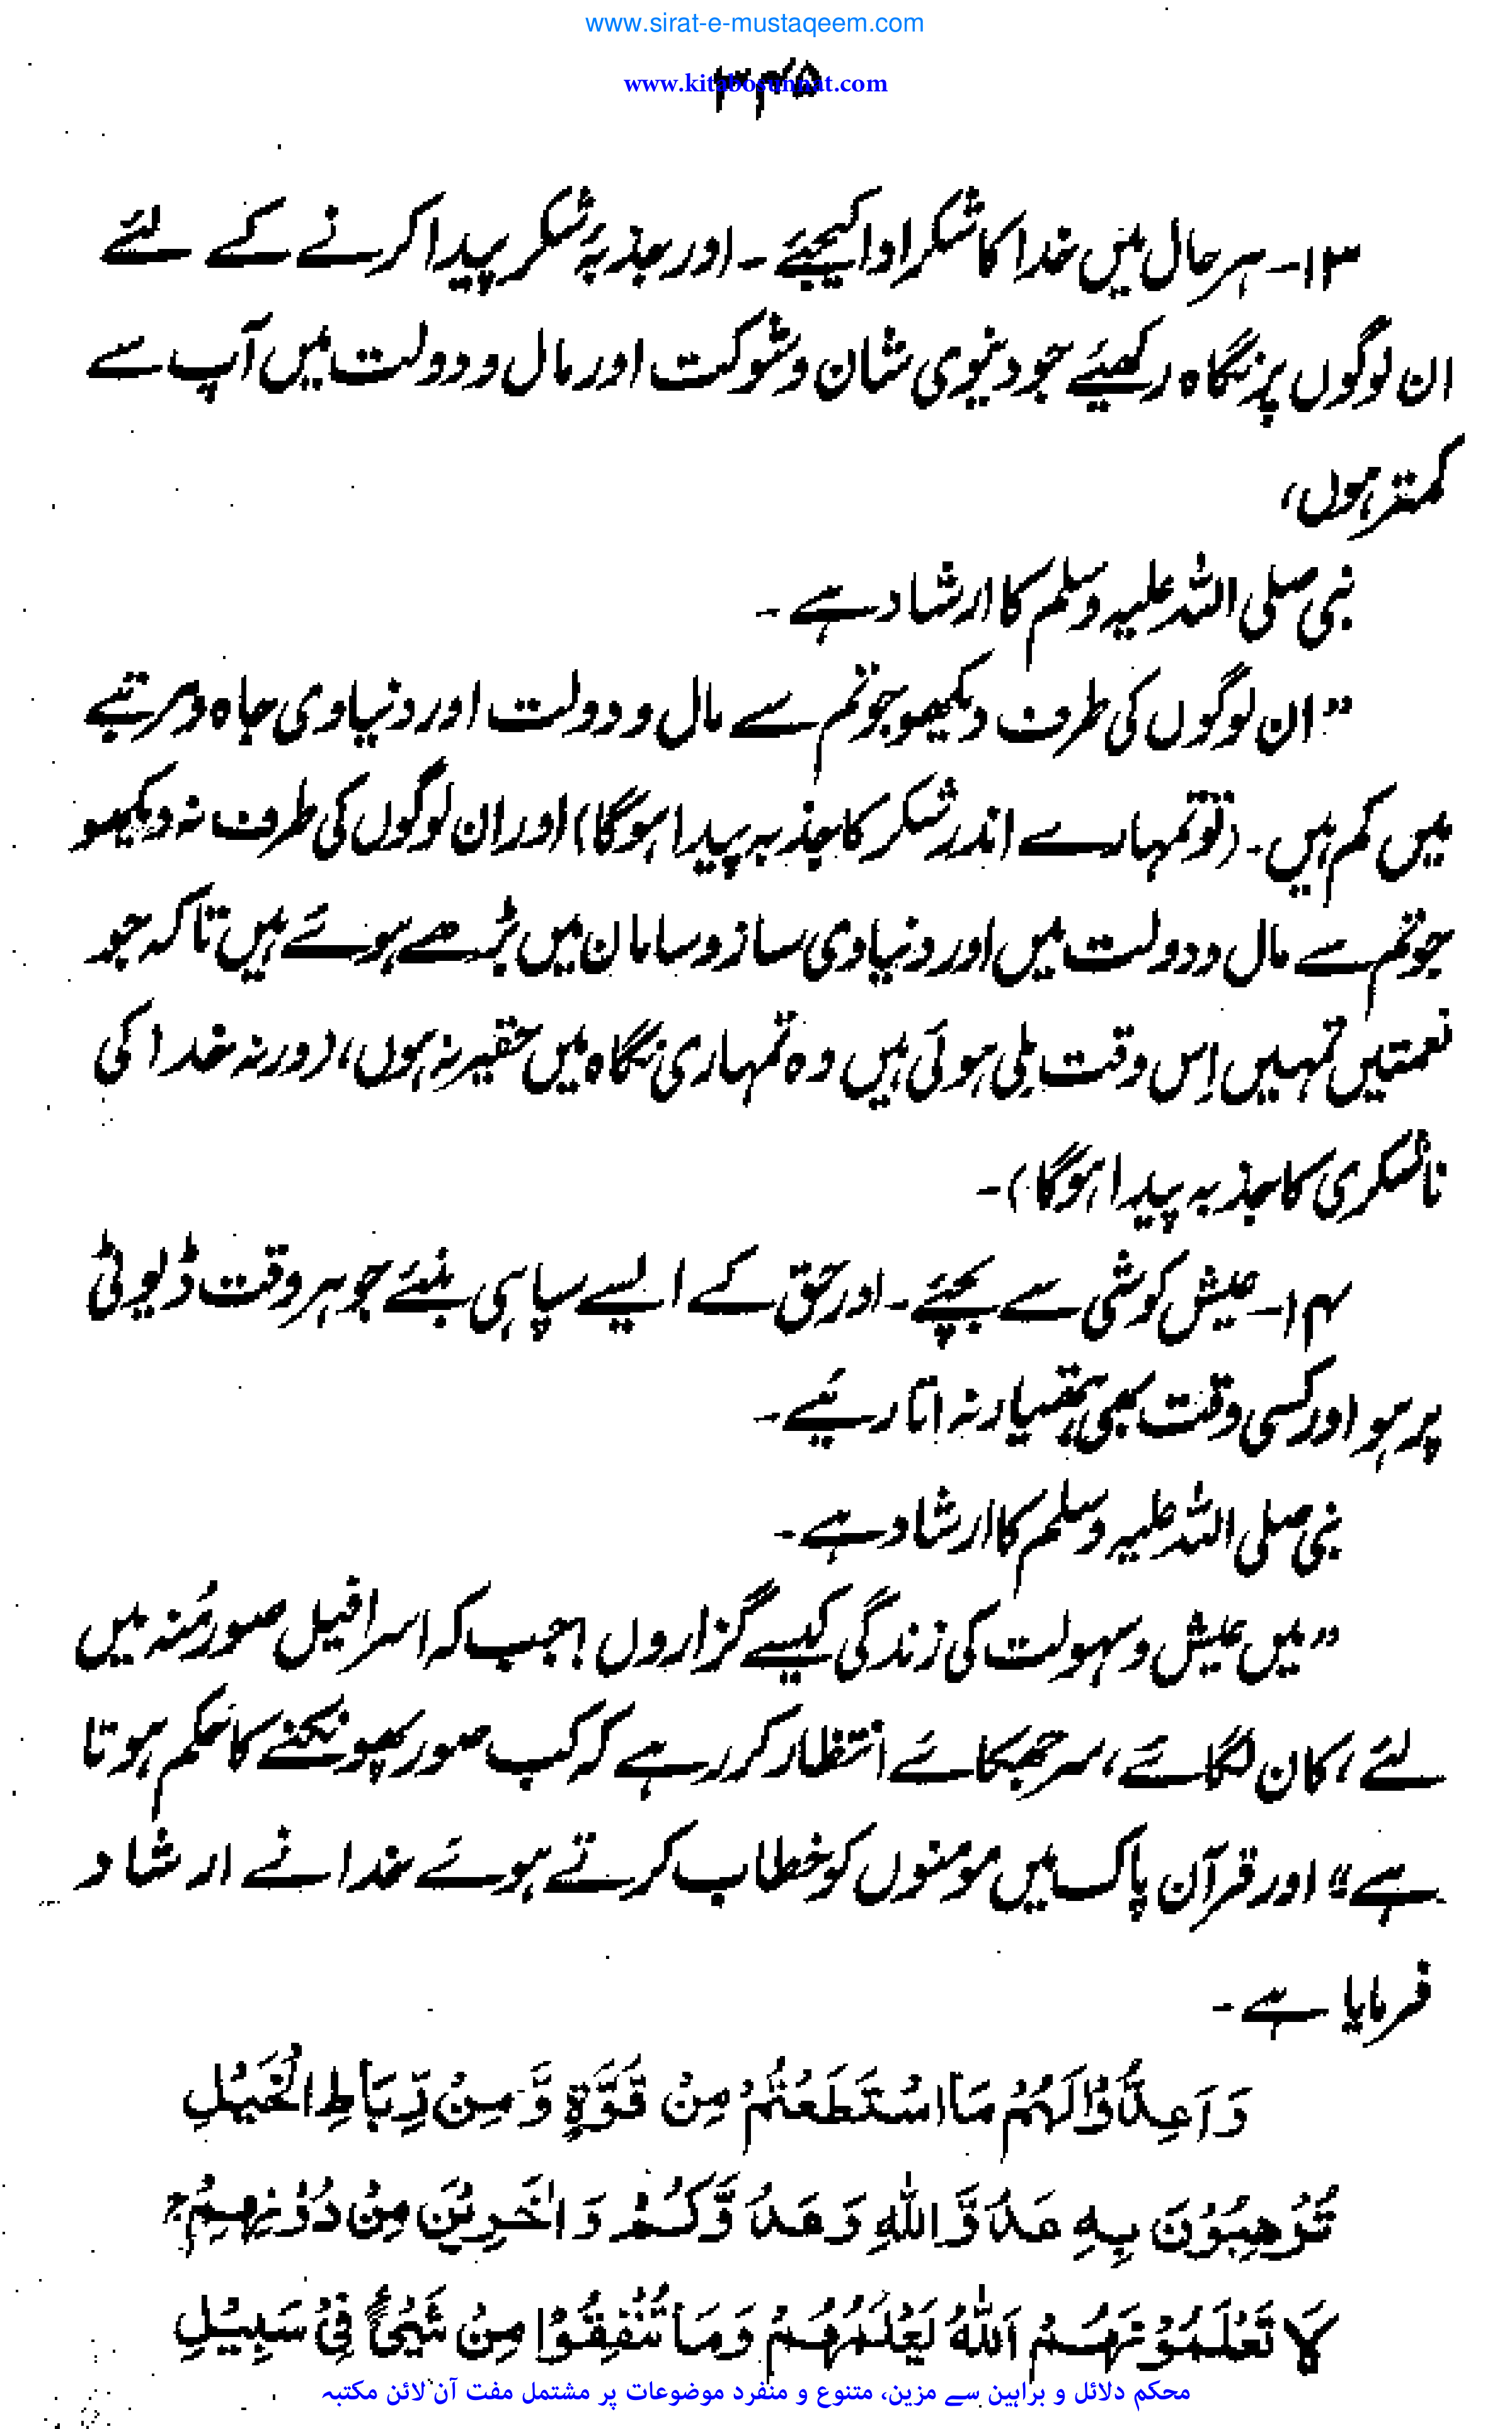 www.sirat-e-mustaqeem.com
www.kitabosunnat.com
۳۴۵
۱۳۔ ہر حال میں خدا کا شکر ادا کیجئے ۔ اور جذبۂ شکر پیدا کرنے کے لئے
ان لوگوں پر نگاہ رکھیئے جو دنیوی شان و شوکت اور مال و دولت میں آپ سے
کمتر ہوں،
نبی صلی اللہ علیہ وسلم کا ارشاد ہے ۔
”ان لوگوں کی طرف دیکھو جو تم سے مال و دولت اور دنیاوی جاہ و مرتبے
میں کم ہیں ۔ (تو تمہارے اندر شکر کا جذبہ پیدا ہوگا) اور ان لوگوں کی طرف نہ دیکھو
جو تم سے مال و دولت میں اور دنیاوی ساز و سامان میں بڑھے ہوئے ہیں تاکہ جو
نعمتیں تمہیں اِس وقت ملی ہوئی ہیں وہ تمہاری نگاہ میں حقیر نہ ہوں، (ورنہ خدا کی
ناشکری کا جذبہ پیدا ہوگا) ۔
۱۴۔ عیش کوشی سے بچئے ۔ اور حق کے ایسے سپاہی بنئے جو ہر وقت ڈیوٹی
پر ہو اور کسی وقت بھی ہتھیار نہ اتاریئے ۔
نبی صلی اللہ علیہ وسلم کا ارشاد ہے ۔
”میں عیش و سہولت کی زندگی کیسے گزاروں! جب کہ اسرافیل صور مُنہ میں
لئے، کان لگائے، سر جھکائے انتظار کر رہے کہ کب صور پھونکنے کا حکم ہوتا
ہے“ اور قرآن پاک میں مومنوں کو خطاب کرتے ہوئے خدا نے ارشاد
فرمایا ہے ۔
وَاَعِدُّوْا لَهُمْ مَا اسْتَطَعْتُمْ مِنْ قُوَّةٍ وَّ مِنْ رِّبَاطِ الْخَيْلِ
تُرْهِبُوْنَ بِهٖ عَدُوَّ اللهِ وَعَدُوَّكُمْ وَاٰخَرِيْنَ مِنْ دُوْنِهِمْ ج
لَا تَعْلَمُوْنَهُمْ اَللهُ يَعْلَمُهُمْ وَمَا تُنْفِقُوْا مِنْ شَيْئٍ فِيْ سَبِيْلِ
محکم دلائل و براہین سے مزین، متنوع و منفرد موضوعات پر مشتمل مفت آن لائن مکتبہ